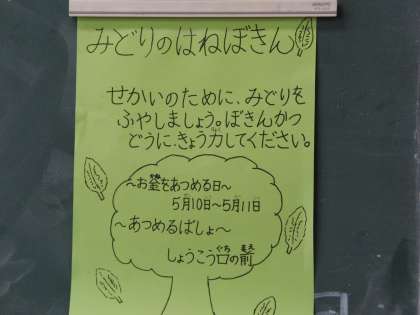 みどりのはねぼきん
せかいのために、みどりを
ふやしましょう。ぼきんかつ
どうに、きょう力してください。
～お金をあつめる日～
5月10日～5月11日
～あつめるばしょ～
しょうこう口の前